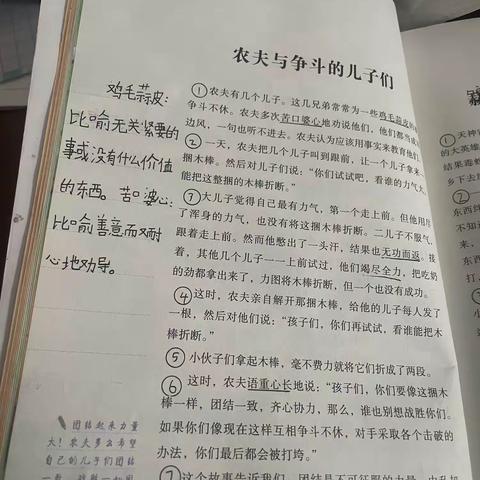 农夫与争斗的儿子们
鸡毛蒜皮:
比喻无关紧要的
事或没有什么价值
的东西。苦口婆心:
比喻善意而又耐
心地劝导。
①农夫有几个儿子。这几兄弟常常为一些鸡毛蒜皮的
争斗不休。农夫多次苦口婆心地劝说他们,他们都当成
边风,一句也听不进去。农夫认为应该用事实来教育他们
②一天,农夫把几个儿子叫到跟前,让一个儿子拿来一
捆木棒。然后对儿子们说:“你们试试吧,看谁的力气大,
能把这整捆的木棒折断。”
③大儿子觉得自己最有力气,第一个走上前。但他用尽
了浑身的力气,也没有将这捆木棒折断。二儿子不服气,
跟着走上前。然而他憋出了一头汗,结果也无功而返。接
着,其他几个儿子一一上前试过,他们竭尽全力,把吃奶
的劲都拿出来了,力图将木棒折断,但一个也没有成功。
④这时,农夫亲自解开那捆木棒,给他的儿子每人发了
一根,然后对他们说:“孩子们,你们再试试,看谁能把木
棒折断。”
⑤小伙子们拿起木棒,毫不费力就将它们折成了两段。
⑥这时,农夫语重心长地说:“孩子们,你们要像这捆木
棒一样,团结一致,齐心协力,那么,谁也别想战胜你们。
如果你们像现在这样互相争斗不休,对手采取各个击破的
办法,你们最后都会被打垮。”
⑦这个故事告诉我们,团结是不可征服的力量
团结起来力量
大!农夫多么希望
自己的儿子们团结
①天神
的大英雄
结果毒
乡下去
②
东西
不知
来,
打,